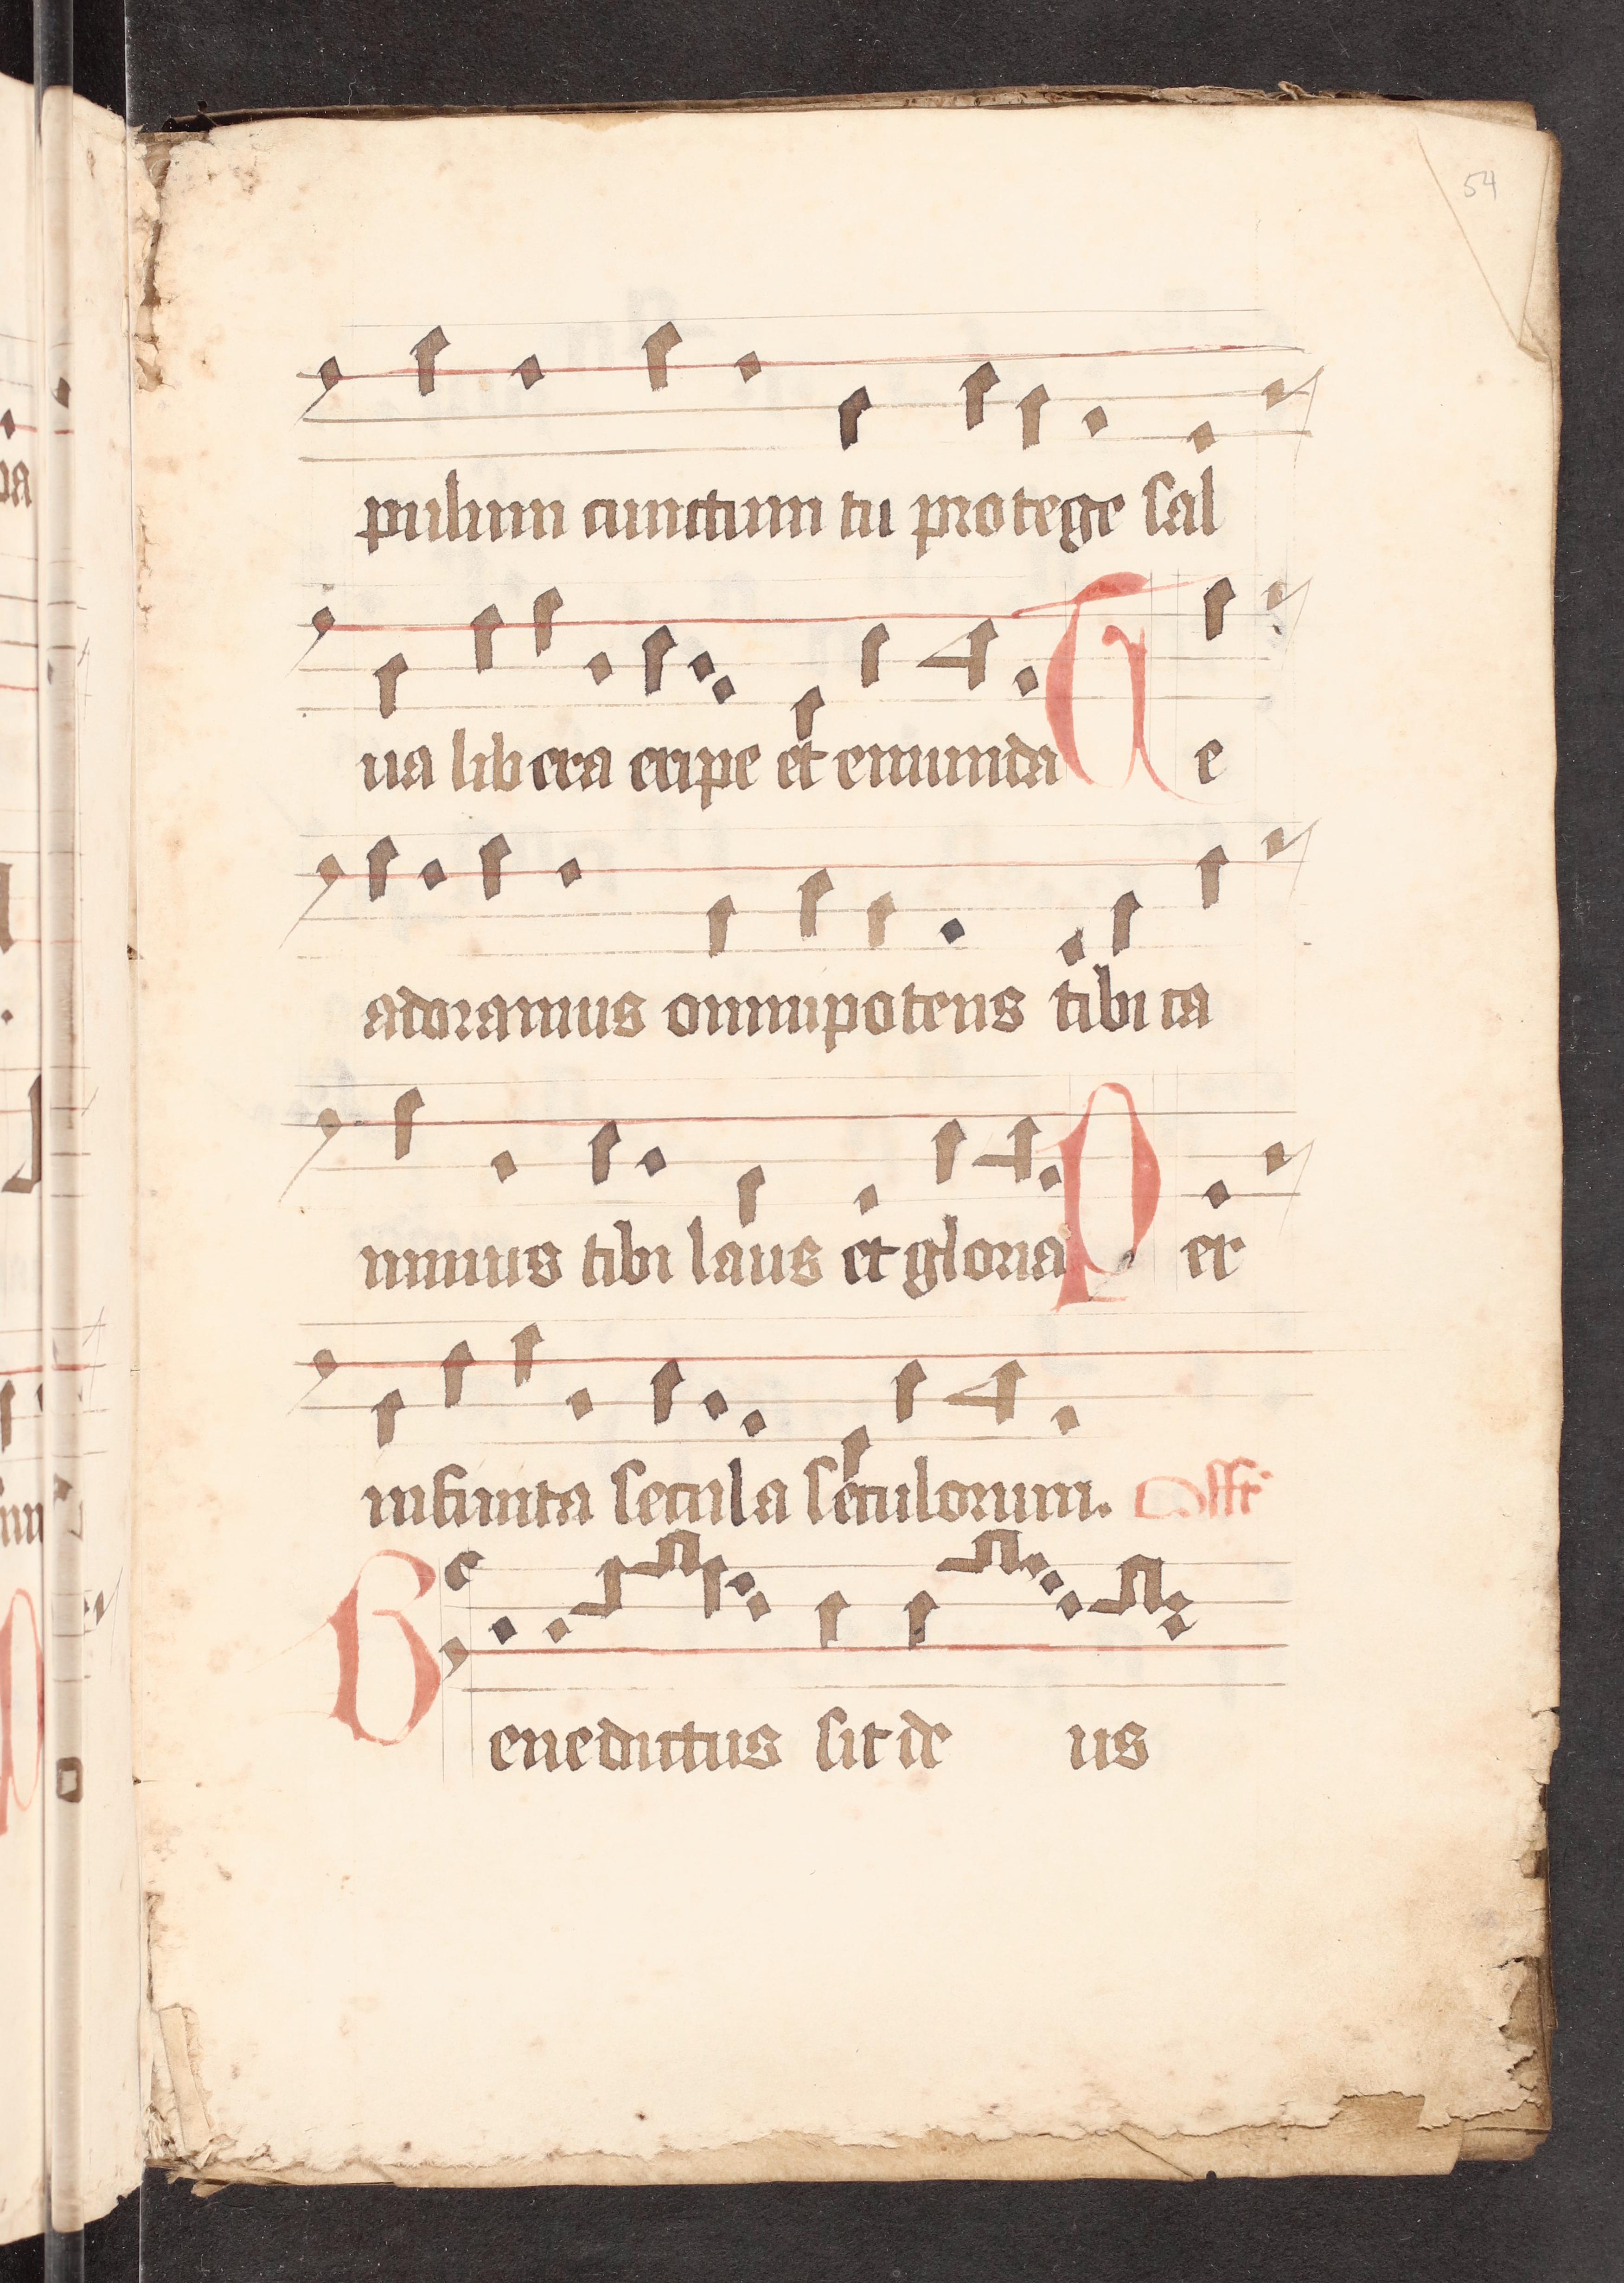 54
pulum cunctum tu protege sal
ua libera eripe et emunda Te
adoramus omnipotens tibi ca
nimus tibi laus et gloria Per
infinita secula seculorum. Offr
Benedictus sit de us